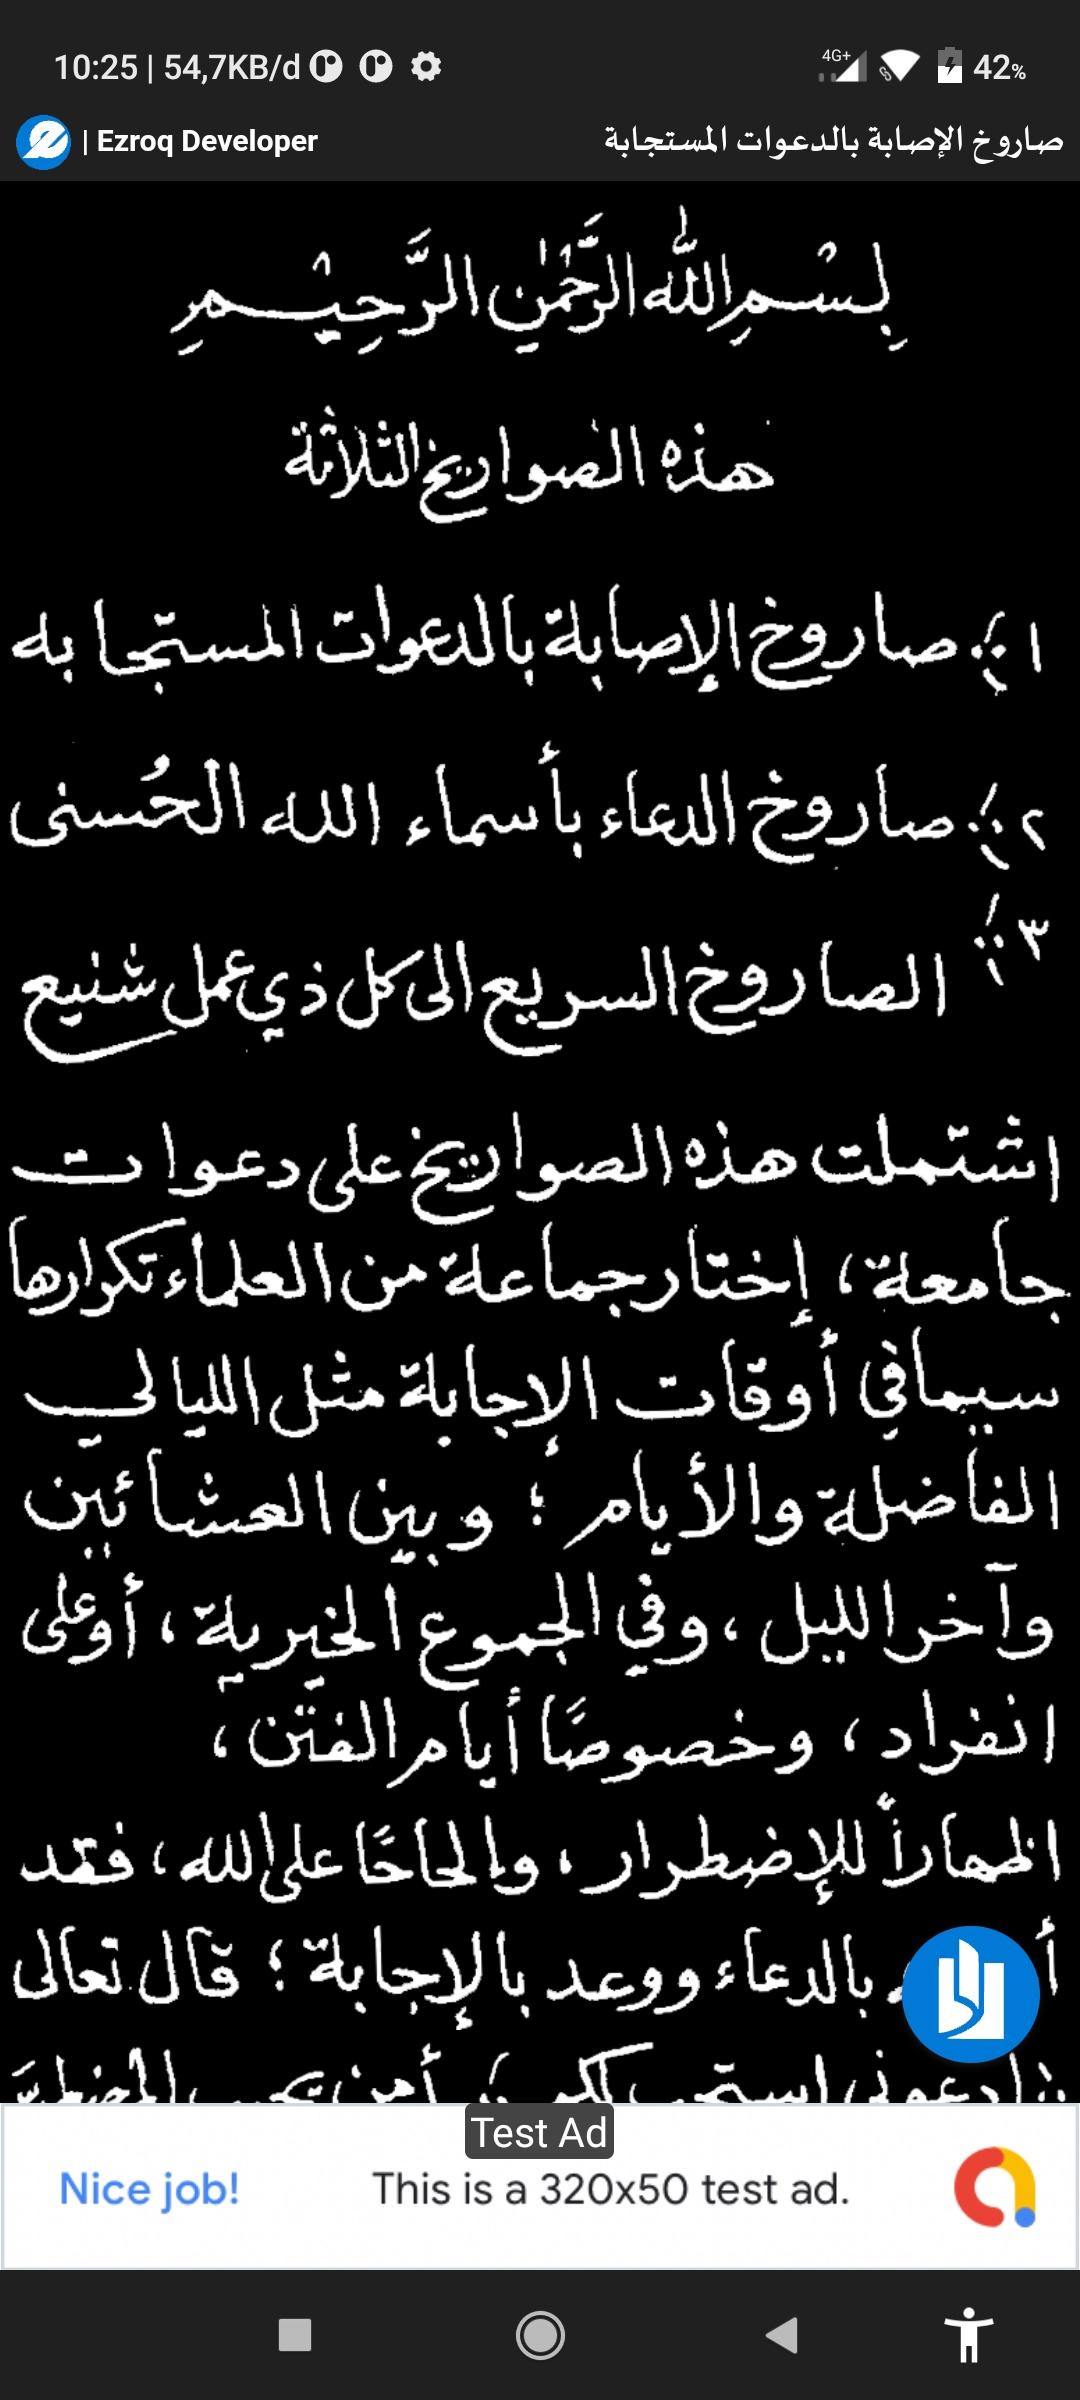 10:25 | 54,7KB/d 4G+ 42%
| Ezroq Developer صاروخ الإصابة بالدعوات المستجابة
بِسْمِ اللهِ الرَّحْمٰنِ الرَّحِيْمِ
هذه الصواريخ الثلاثة
١﴾ صاروخ الإصابة بالدعوات المستجابه
٢﴾ صاروخ الدعاء بأسماء الله الحُسنى
٣﴾ الصاروخ السريع الى كل ذي عمل شنيع
اشتملت هذه الصواريخ على دعوات
جامعة، إختار جماعة من العلماء تكرارها
سيما في أوقات الإجابة مثل الليالي
الفاضلة والأيام ؛ وبين العشائين
وآخر الليل، وفي الجموع الخيرية، أو على
انفراد، وخصوصًا أيام الفتن،
اظهاراً للإضطرار، وإلحاحًا على الله، فقد
بالدعاء ووعد بالإجابة ؛ قال تعالى
ادعوني استجب لكم أمن يجيب المضطرَّ
Test Ad
Nice job! This is a 320x50 test ad.